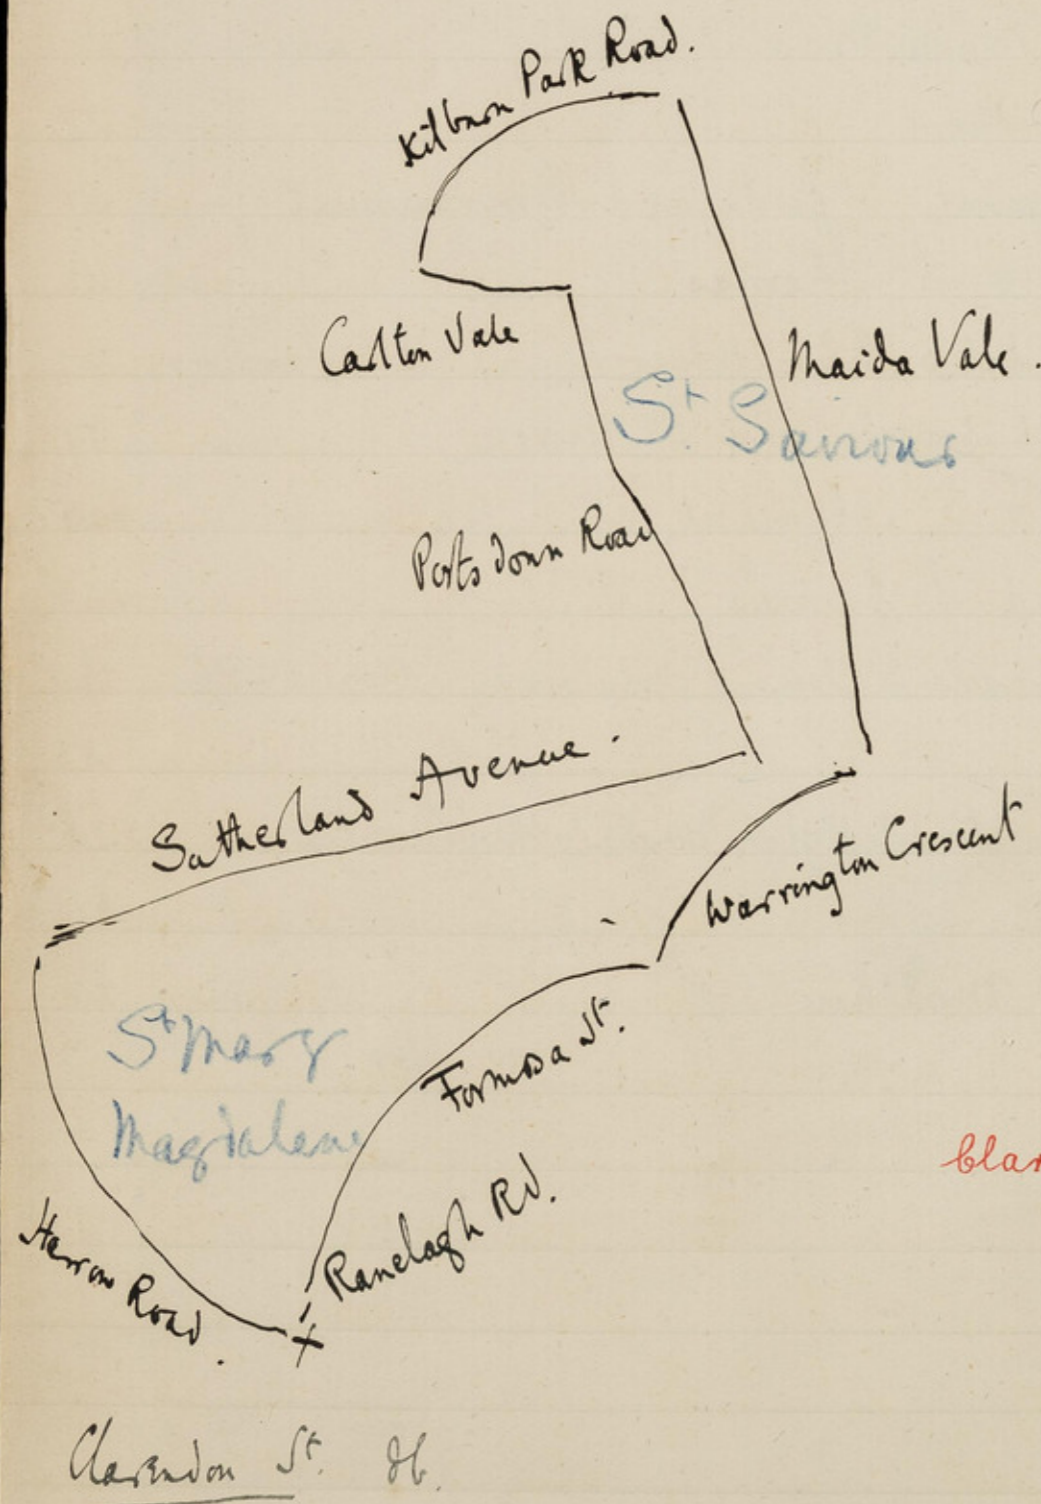 Kilburn Park Road.
Carlton Vale
Maida Vale.
St. Saviours
Portsdown Road
Sutherland Avenue.
Warrington Crescent
Formosa St.
St Mary
Magdalene
Ranelagh Rd.
Harrow Road.
Clarendon St.